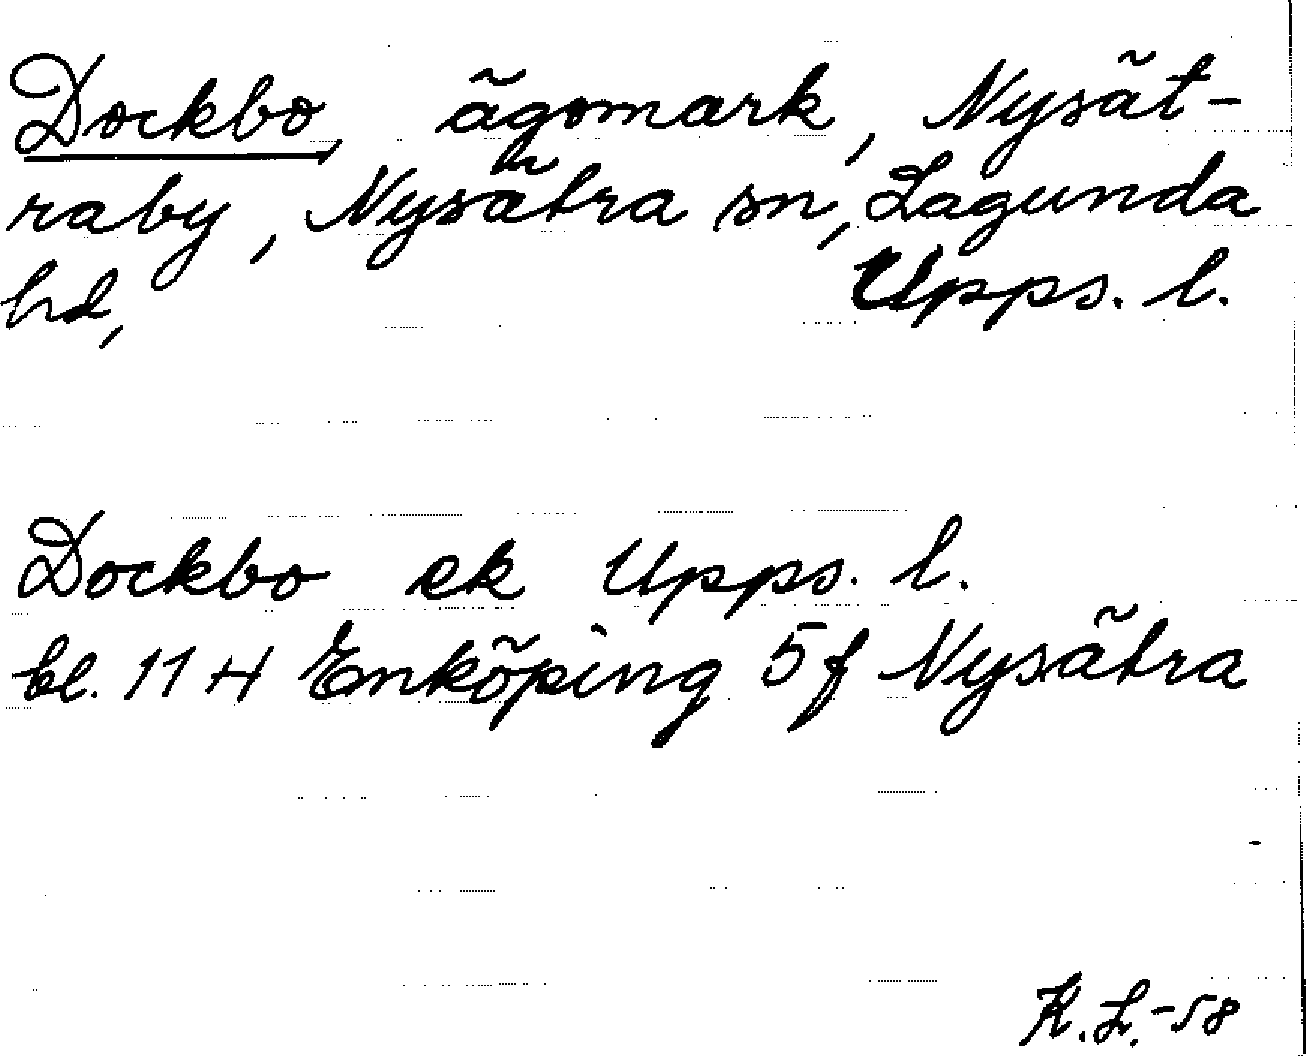 Dockbo, ägomark, Nysät-
raby, Nysätra sn, Lagunda
hd, Upps. l.
Dockbo ek Upps. l.
bl. 11 H Enköping 5f Nysätra
K.L.-58